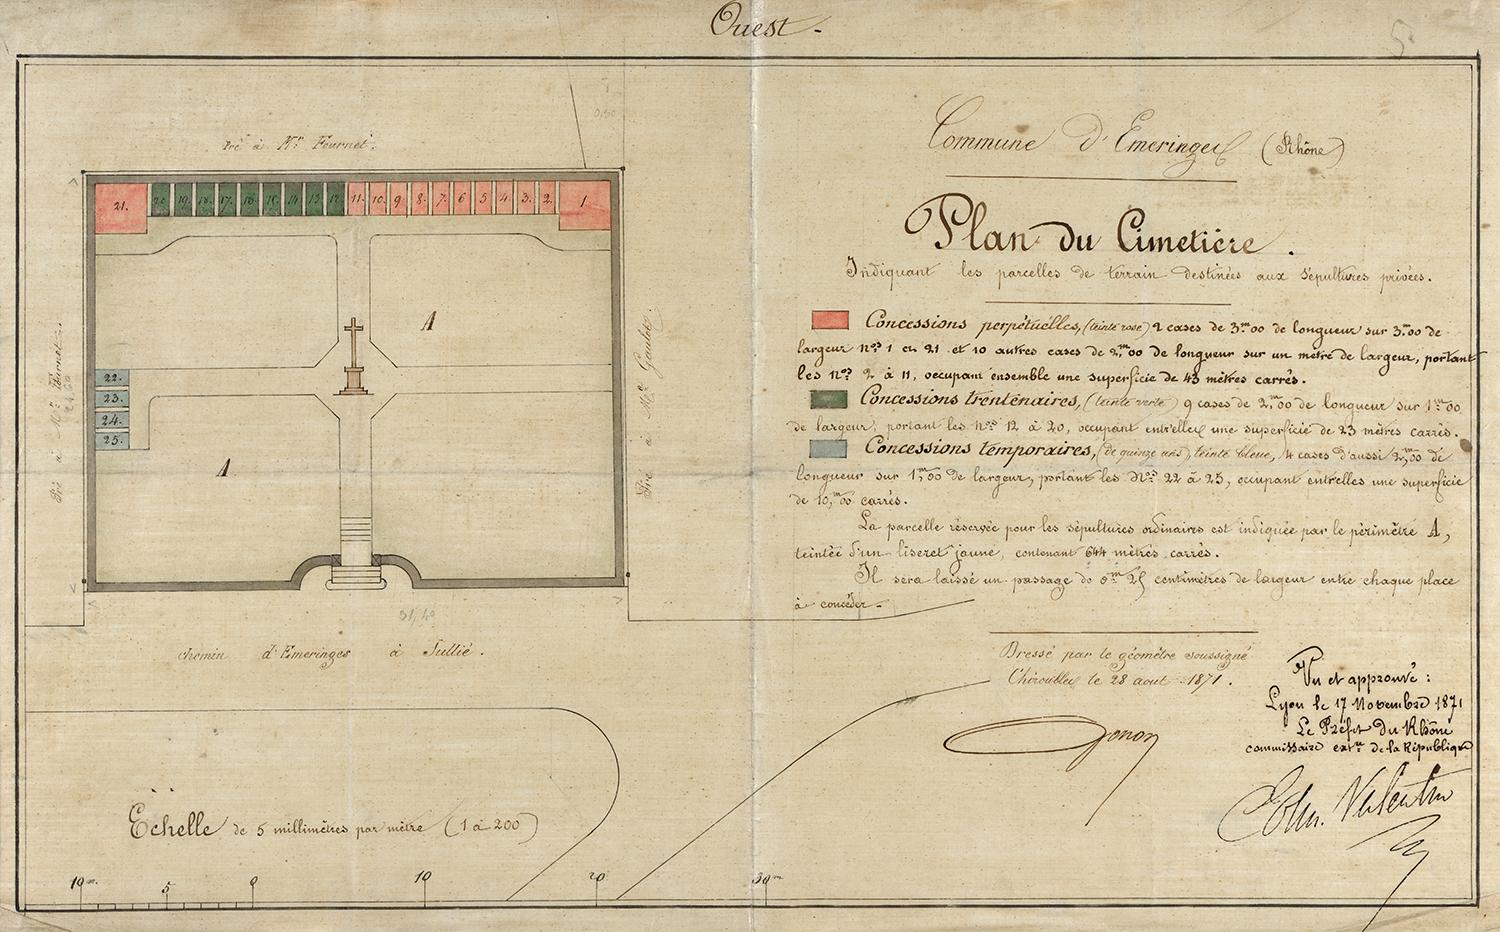 Ouest.
Pré à Mr. Fournet.
21. 20. 19. 18. 17. 16. 15. 14. 13. 12. 11. 10. 9. 8. 7. 6 5 4. 3. 2. 1.
A
22.
23.
24.
25.
A
Pré à Mr. Fournet.
Pré à Mr.
31,40
chemin d'Emeringes à Jullié.
Echelle de 5 millimètres par mètre (1 à 200)
10m. 5 0 10 20 30m
Commune d'Emeringes (Rhône)
Plan du Cimetière.
Indiquant les parcelles de terrain destinées aux sépultures privées.
Concessions perpétuelles, (teinte rose) 2 cases de 3m00 de longueur sur 3m00 de
largeur nos 1 et 21 et 10 autres cases de 2m,00 de longueur sur un mètre de largeur, portant
les nos 2 à 11, occupant ensemble une superficie de 43 mètres carrés.
Concessions trentenaires, (teinte verte) 9 cases de 2m00 de longueur sur 1m00
de largeur, portant les nos 12 à 20, occupant entr'elles une superficie de 23 mètres carrés.
Concessions temporaires, (de quinze ans) teinte bleue, 4 cases d'aussi 2m,00 de
longueur sur 1m,00 de largeur, portant les Nos 22 à 25, occupant entr'elles une superficie
de 10,m00 carrés.
La parcelle réservée pour les sépultures ordinaires est indiquée par le périmètre A,
teintée d'un liseret jaune, contenant 644 mètres carrés.
Il sera laissé un passage de 0m 25 centimètres de largeur entre chaque place
à concéder.
Dressé par le géomètre soussigné
Chiroubles le 28 aout 1871.
Vu et approuvé :
Lyon le 17 Novembre 1871
Le Préfet du Rhône
commissaire extre de la République
Edm. Valentin